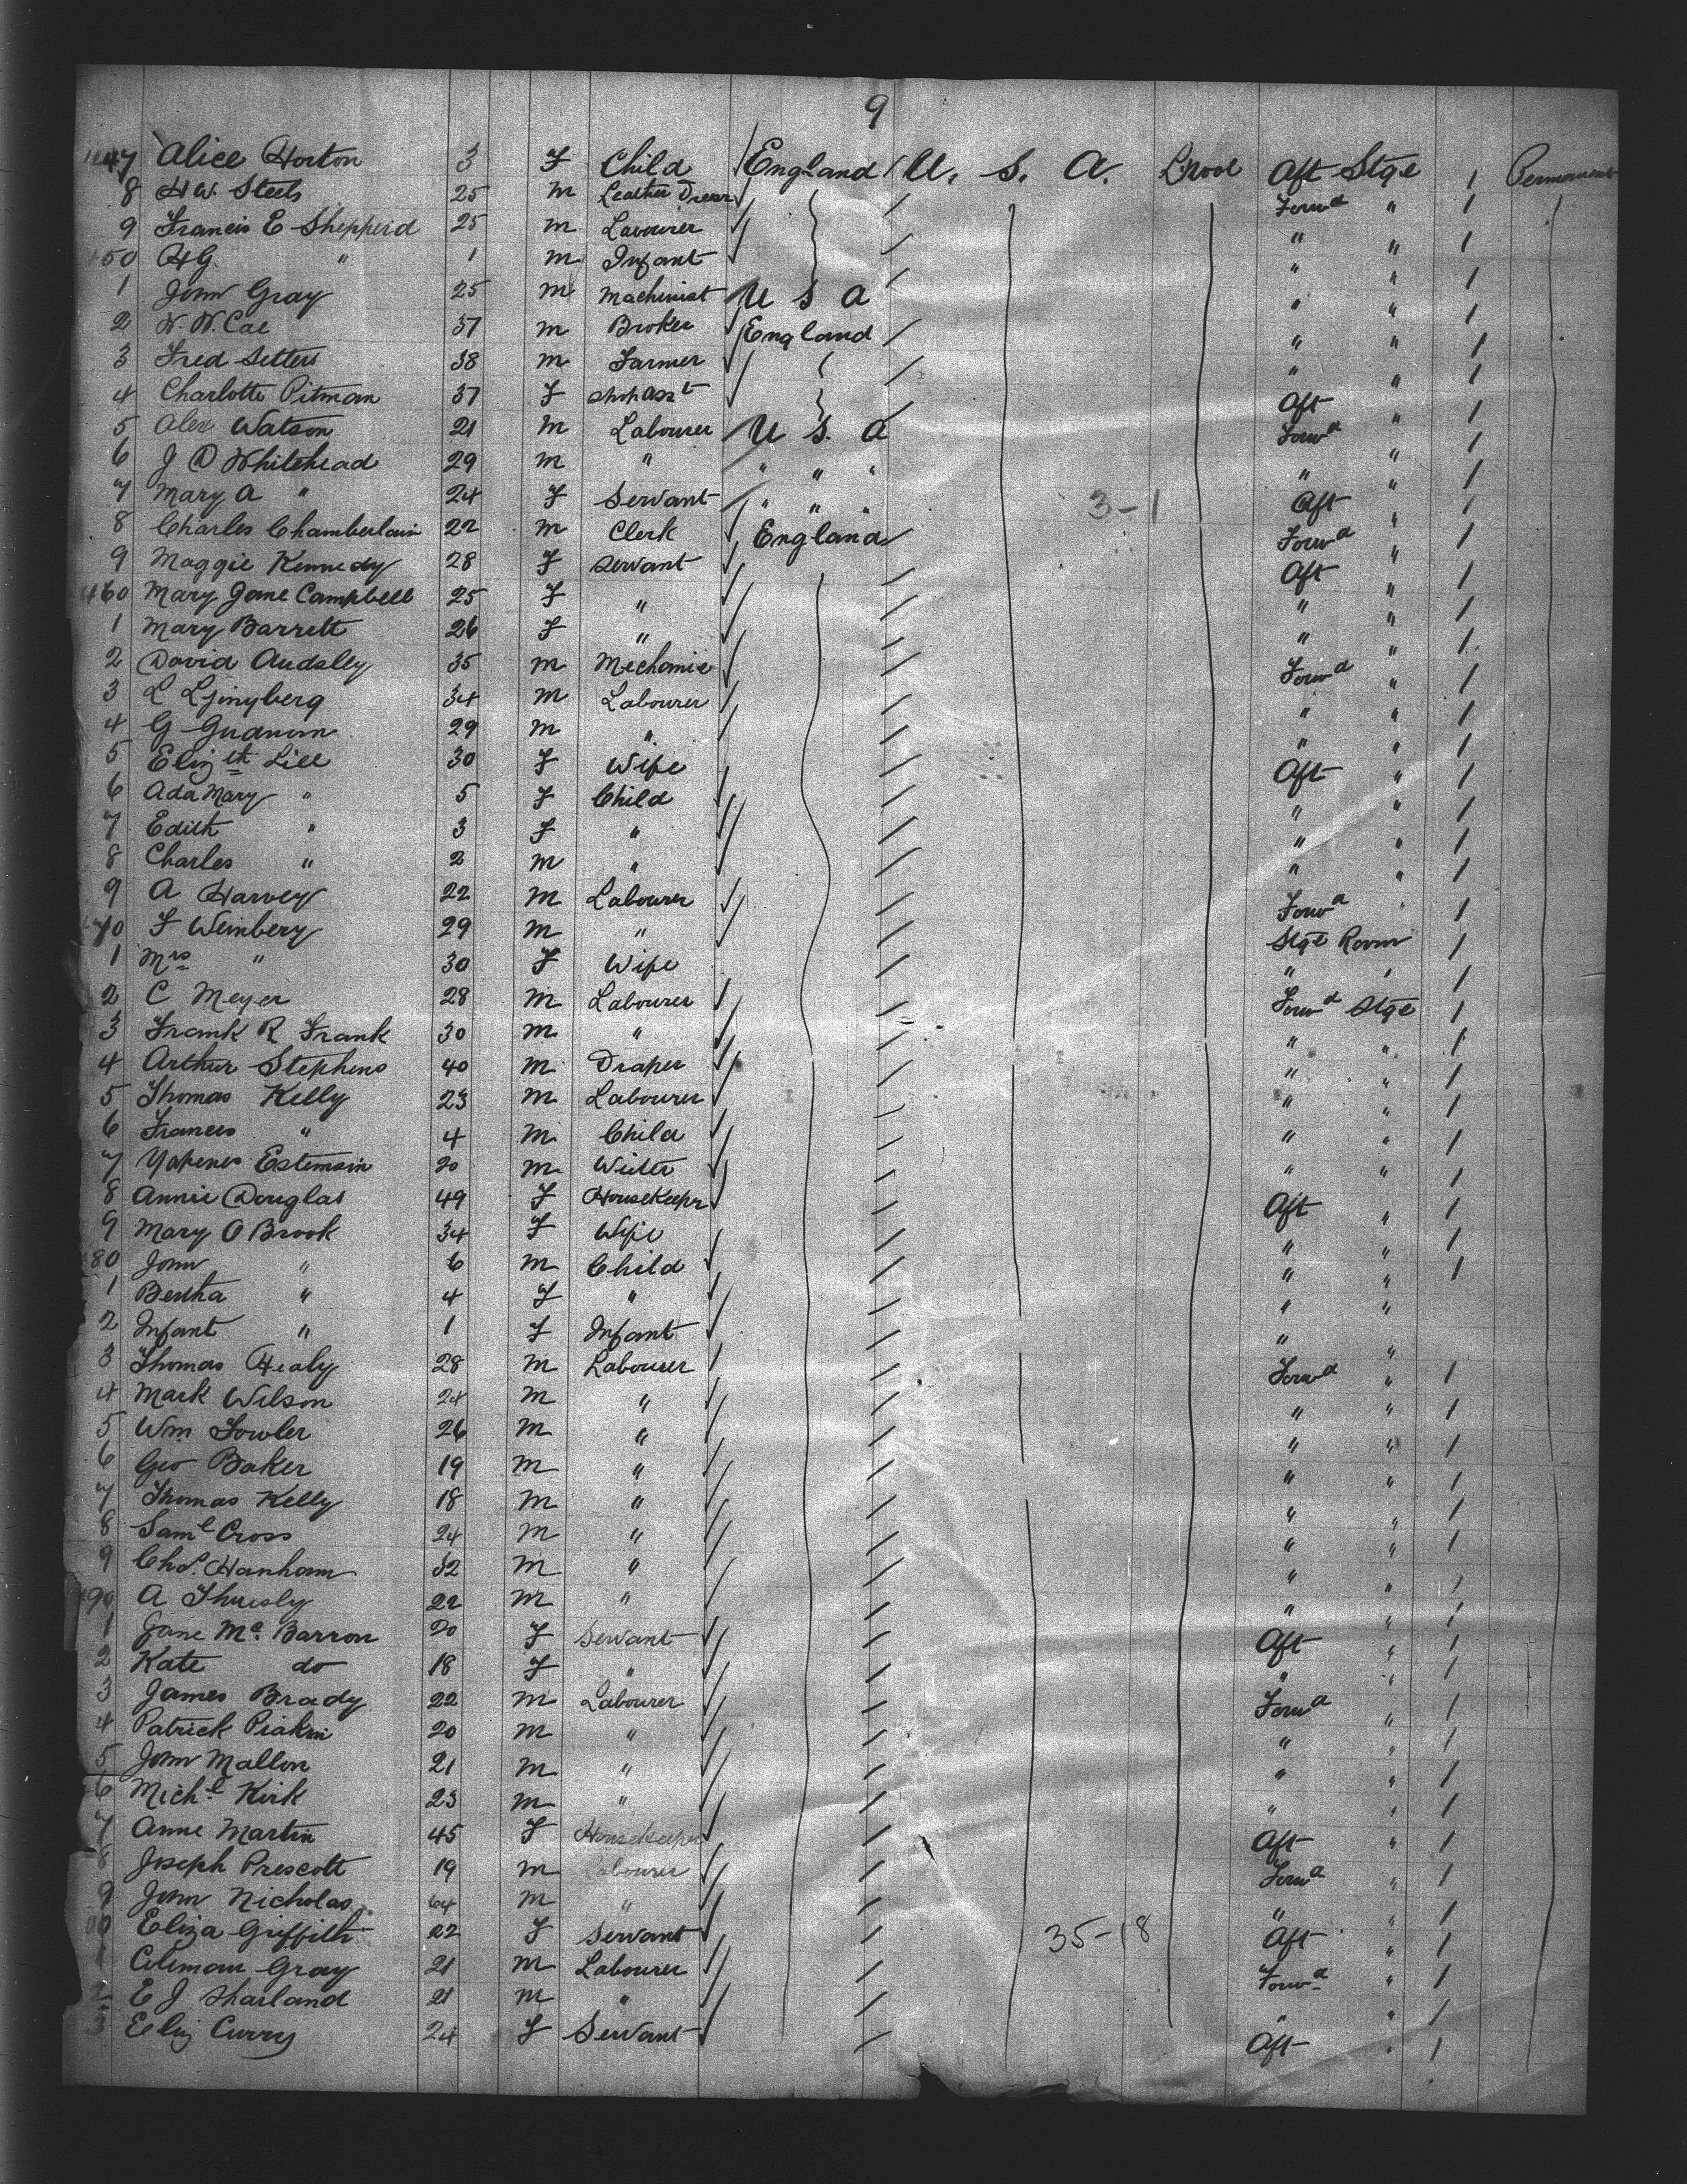 9
447 Alice Horton 3 F Child England U. S. A. L'pool Aft Stge 1 Permanent
8 H W. Steels 25 m Leather Dresr Forwd " 1
9 Francis E Shepperd 25 m Labourer " " 1
450 H G. " 1 m Infant " " 1
1 John Gray 25 m Machinist U S A " " 1
2 W. W. Coe 37 m Broker England " " 1
3 Fred Setters 38 m Farmer " " 1
4 Charlotte Pitman 37 F Shop Asst Aft " 1
5 Alex Watson 21 m Labourer U. S. A Forwd " 1
6 J D Whitehead 29 m " " " " " " 1
7 Mary A " 24 F Servant " " " 3-1 Aft " 1
8 Charles Chamberlain 22 m Clerk England Forwd " 1
9 Maggie Kennedy 28 F Servant Aft " 1
460 Mary Jane Campbell 25 F " " " 1
1 Mary Barrett 26 F " " " 1
2 David Audsley 35 m Mechanic Forwd " 1
3 L Ljinyberg 34 m Labourer " " 1
4 G 29 m " " " 1
5 Elizth Lill 30 F Wife Aft " 1
6 Ada Mary " 5 F Child " " 1
7 Edith " 3 F " " " 1
8 Charles " 2 m " " " 1
9 A Harvey 22 m Labourer Forwd " 1
470 F Weinbery 29 m " Stge Room 1
1 Mrs " 30 F Wife " " 1
2 C Meyer 28 m Labourer Forwd Stge 1
3 Frank R Frank 30 m " " " 1
4 Arthur Stephens 40 m Draper " " 1
5 Thomas Kelly 23 m Labourer " " 1
6 Francis " 4 m Child " " 1
7 Estemsin 20 m " " 1
8 Annie Douglas 49 F Housekeepr Aft " 1
9 Mary O Brook 34 F Wife " " 1
480 John " 6 m Child " " 1
1 Bertha " 4 F " " "
2 Infant " 1 F Infant " "
3 Thomas Healy 28 m Labourer Forwd " 1
4 Mark Wilson 24 m " " " 1
5 Wm Fowler 26 m " " " 1
6 Geo Baker 19 m " " " 1
7 Thomas Kelly 18 m " " " 1
8 Saml Cross 24 m " " " 1
9 Chas. Hanham 32 m " " " 1
490 A 22 m " " " 1
1 Jane Mc Barron 20 F Servant Aft " 1
2 Kate do 18 F " " " 1
3 James Brady 22 m Labourer Forwd " 1
4 Patrick 20 m " " " 1
5 John Mallon 21 m " " " 1
6 Michl Kirk 23 m " " " 1
7 Anne Martin 45 F Housekeeper Aft " 1
8 Joseph Prescott 19 m Labourer Forwd " 1
9 John Nicholas 64 m " " " 1
00 Eliza Griffith 22 F Servant 35-18 Aft " 1
1 Coleman Gray 21 m Labourer Forwd " 1
2 E J Sharland 21 m " " " 1
3 Eliz Curry 24 F Servant Aft " 1